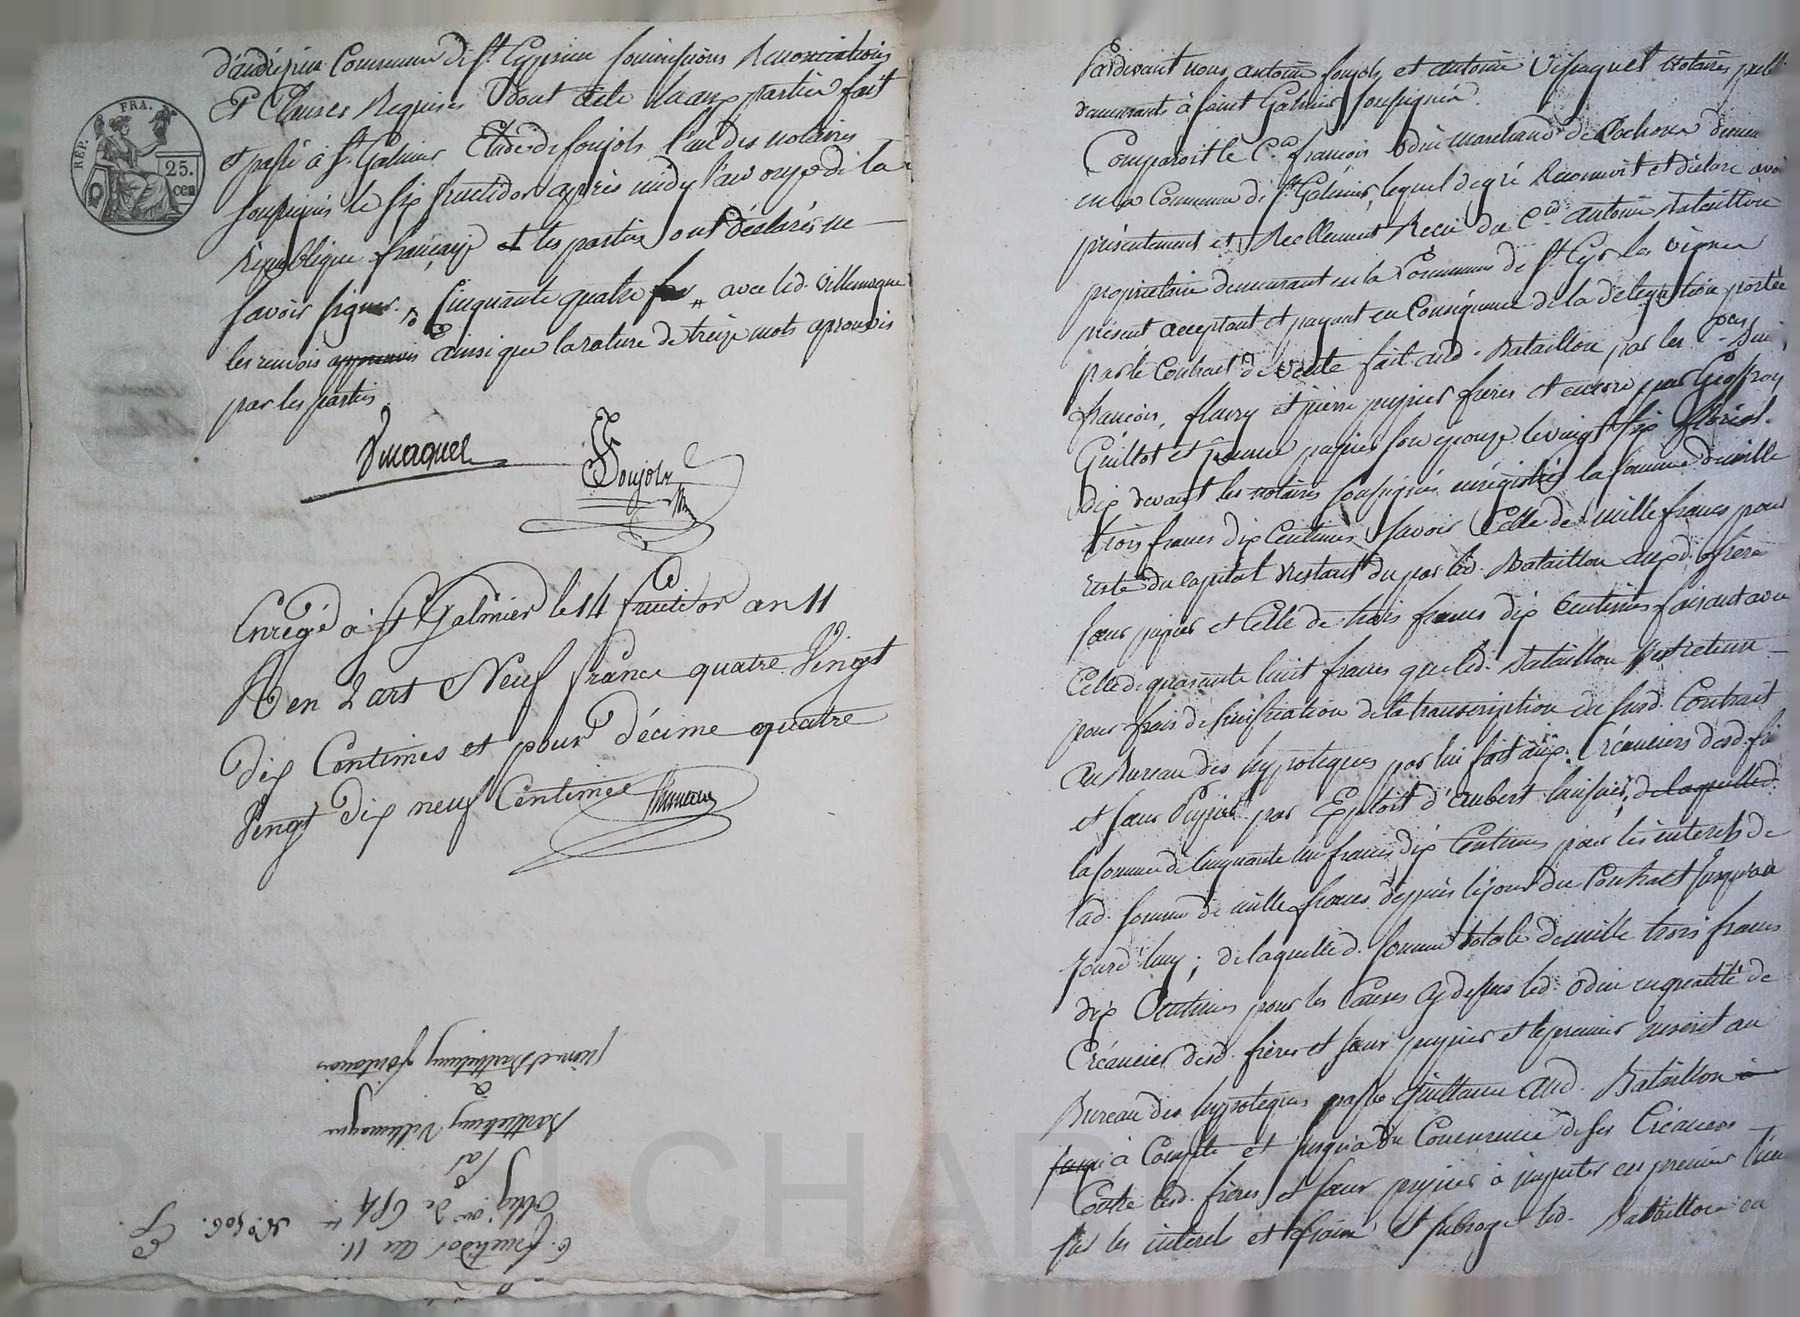 REP. FRA.
25.
cen
Commune de St Cyprien soumissions Renonciations
Et Clauses Requises dont acte aux parties fait
et passé à St Galmier Etude de foujols l'un des notaires
soussignés le six fructidor après midy l'an onze de la
République française et les parties ont déclarés ne
savoir signer. Cinquante quatre avec led. villemagne
les renvois approuvés ainsi que la rature de treize mots aprouvés
par les parties
Foujols
Enregé à St Galmier le 14 fructidor an 11
Neuf francs quatre Vingt
Dix Centimes et pour Décime quatre
Vingt Dix neuf Centimes
6. fructidor an 11. N° 506.
Oblig.on de
Par
Barthélemy Villemagne
à
CHAP
Pardevant nous antoine foujols et antoine notaires publ
demeurants à saint Galmier soussignés.
Comparoit le C.en françois odin marchand de Cochons demeu
en la Commune de St Galmier, lequel de gré Reconnoit et déclare avoi
présentement et Réellement Recu du C.en antoine Bataillon
propriétaire demeurant en la Commune de St Cyr les vignes
présent acceptant et payant en Conséquence de la délégation portée
par le Contract de vente fait aud. Bataillon par les C.ens
françois, fleury et pierre pupier frères et encore par Geoffroy
Guillot et pupier son epouze le vingt six floréal
dix devant les notaires soussignés enrégistré la somme de mille
trois francs dix Centimes savoir Celle de mille francs pour
reste du Capital Restant du par led. Bataillon auxd. frères
sœur pupier et Celle de trois francs dix Centimes faisant avec
Celle de quarante huit francs que led. Bataillon retient
pour frais de signification de la transcription du susd. Contract
au Bureau des hypoteques par lui fait aux Créanciers desd. frè
et sœur Pupier par Exploit d'aubert huissier, de laquelle d.
la somme de Cinquante un francs dix Centimes pour les interets de
lad. somme de mille francs depuis le jour du Contract jusqu'à
jourd'huy; de laquelle d. somme totale de mille trois francs
dix Centimes pour les Causes cy dessus led. odin en qualité de
Créancier desd. frères et sœur pupier et le premier inscrit au
Bureau des hypoteques passe quittance aud. Bataillon à
jusqu à Compte et jusqu'à du Concurrence de ses Créances
Contre lesd. frères et sœur pupier à imputer en premier lieu
sur les interets et frais et subroge led. Bataillon en